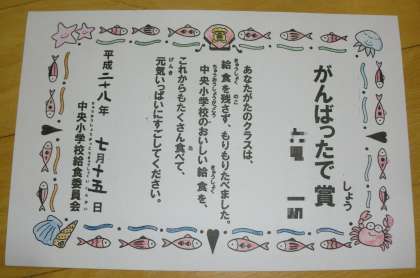 がんばったで賞
しょう
あなたがたのクラスは、
給食を残さず、もりもりたべました。
中央小学校のおいしい給食を、
これからもたくさん食べて、
元気いっぱいにすごしてください。
平成二十八年 七月十五日
中央小学校給食委員会